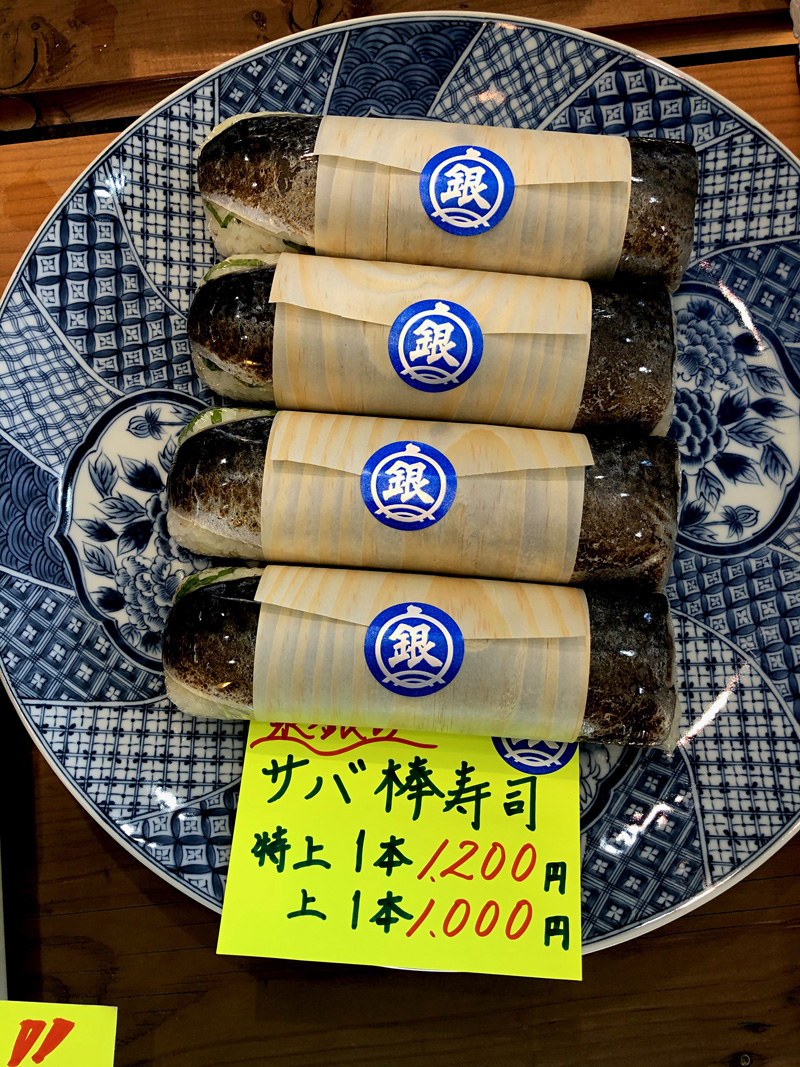 銀
銀
銀
銀
サバ棒寿司
特上1本1,200円
上1本1,000円